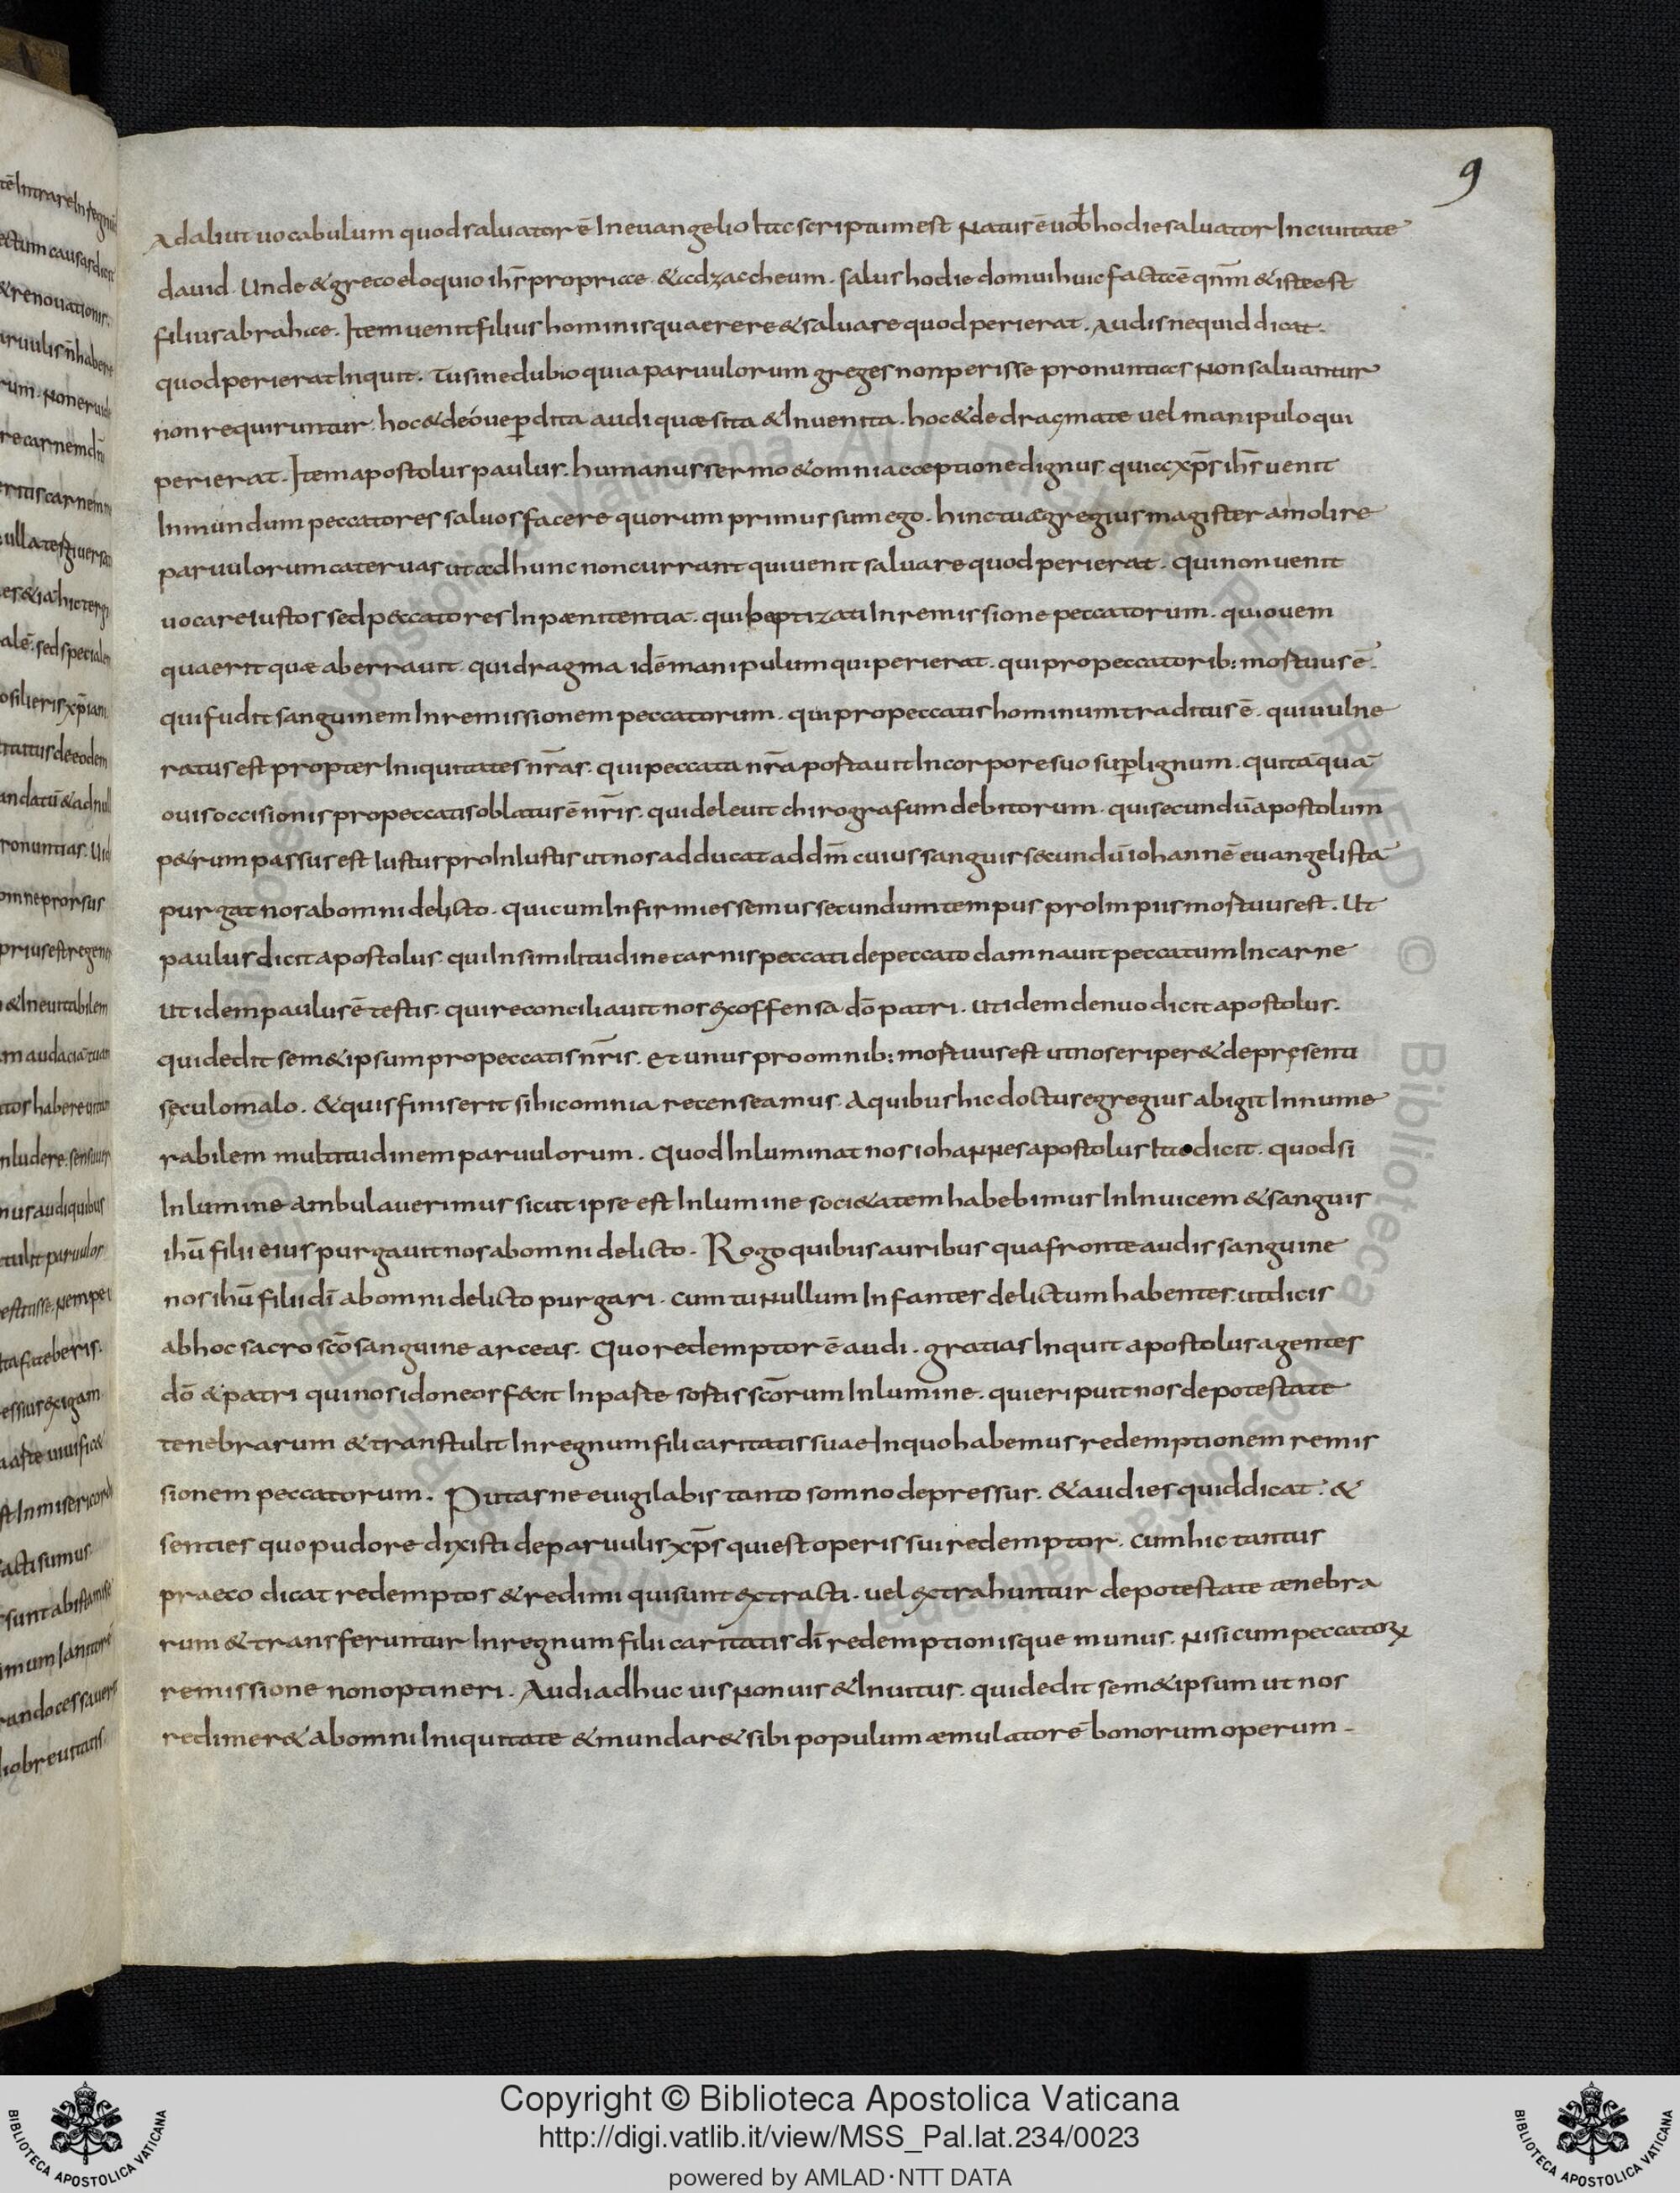 9
Adaliut uocabulum quod saluator ē In euangelio Ita scriptum est Natus ē uob hodie saluator In ciuitate
dauid. Unde & greco eloquio ihs propriae. & ad zaccheum. salus hodie domui huic facta ē qnm & iste est
filius abrahae. Item uenit filius hominis quaerere & saluare quod perierat. Audis nequid dicat.
quod perierat Inquit. Tu sine dubio quia paruulorum greges non perisse pronuntias Non saluantur
non requiruntur. hoc & de oue perdita audi quaesita & Inuenta. hoc & de dragmate uel manipulo qui
perierat. Item apostolus paulus. humanus sermo & omni acceptione dignus. quia xps ihs uenit
In mundum peccatores saluos facere quorum primus sum ego. hinc tu egregius magister amolire
paruulorum cateruas ut ad hunc non currant qui uenit saluare quod perierat. qui non uenit
uocare Iustos sed peccatores In paenitentia. qui baptizati In remissione peccatorum. qui ouem
quaerit quae aberrauit. qui dragma idē manipulum qui perierat. qui pro peccatorib: mortuus ē.
qui fudit sanguinem In remissionem peccatorum. qui pro peccatis hominum traditus ē. qui uulne
ratus est propter Iniquitates nras. qui peccata nra portauit In corpore suo super lignum. qui tāquā
ouis occisionis pro peccatis oblatus ē nris. qui deleuit chirografum debitorum. qui secundū apostolum
p&rum passus est Iustus pro Iniustis ut nos adducat ad dm cuius sanguis secundū iohannē euangelistā
purgat nos ab omni delicto. qui cum Infirmi essemus secundum tempus pro Impiis mortuus est. Ut
paulus dicit apostolus. qui In similitudine carnis peccati de peccato damnauit peccatum In carne
ut idem paulus ē testis. qui reconciliauit nos ex offensa dō patri. ut idem denuo dicit apostolus.
qui dedit sem&ipsum pro peccatis nris. Et unus pro omnib: mortuus est ut nos eriper& de pręsenti
sęculo malo. & quis finis erit si hic omnia recenseamus. A quibus hic doctus egregius abigit Innume
rabilem multitudinem paruulorum. Quod Inluminat nos iohaNNes apostolus Ita dicit. quod si
In lumine ambulauerimus sicut ipse est In lumine soci&atem habebimus In Inuicem & sanguis
ihū filii eius purgauit nos ab omni delicto. Rogo quibus auribus qua fronte audis sanguine
nos ihū filii dī ab omni delicto purgari. cum tu Nullum Infantes delictum habentes. ut dicis
ab hoc sacro scō sanguine arceas. Quo redemptor ē audi. gratias Inquit apostolus agentes
dō & patri qui nos idoneos fecit In parte sortis scōrum In lumine. qui eripuit nos de potestate
tenebrarum & transtulit In regnum fili caritatis suae In quo habemus redemptionem remis
sionem peccatorum. Putasne euigilabis tanto somno depressus. & audies quid dicat. &
senties quo pudore dixisti de paruulis xps qui est operis sui redemptor. cum hic tantus
praeco dicat redemptos & redimi qui sunt extracti. uel extrahuntur de potestate tenebra
rum & transferuntur In regnum filii caritatis dī redemptionisque munus. Nisi cum peccatorꝝ
remissione non optineri. Audi adhuc uis Non uis & Inuitus. qui dedit sem&ipsum ut nos
redimer& ab omni Iniquitate & mundar& sibi populum aemulatorē bonorum operum.
Copyright © Biblioteca Apostolica Vaticana
http://digi.vatlib.it/view/MSS_Pal.lat.234/0023
powered by AMLAD·NTT DATA
BIBLIOTECA APOSTOLICA VATICANA
BIBLIOTECA APOSTOLICA VATICANA